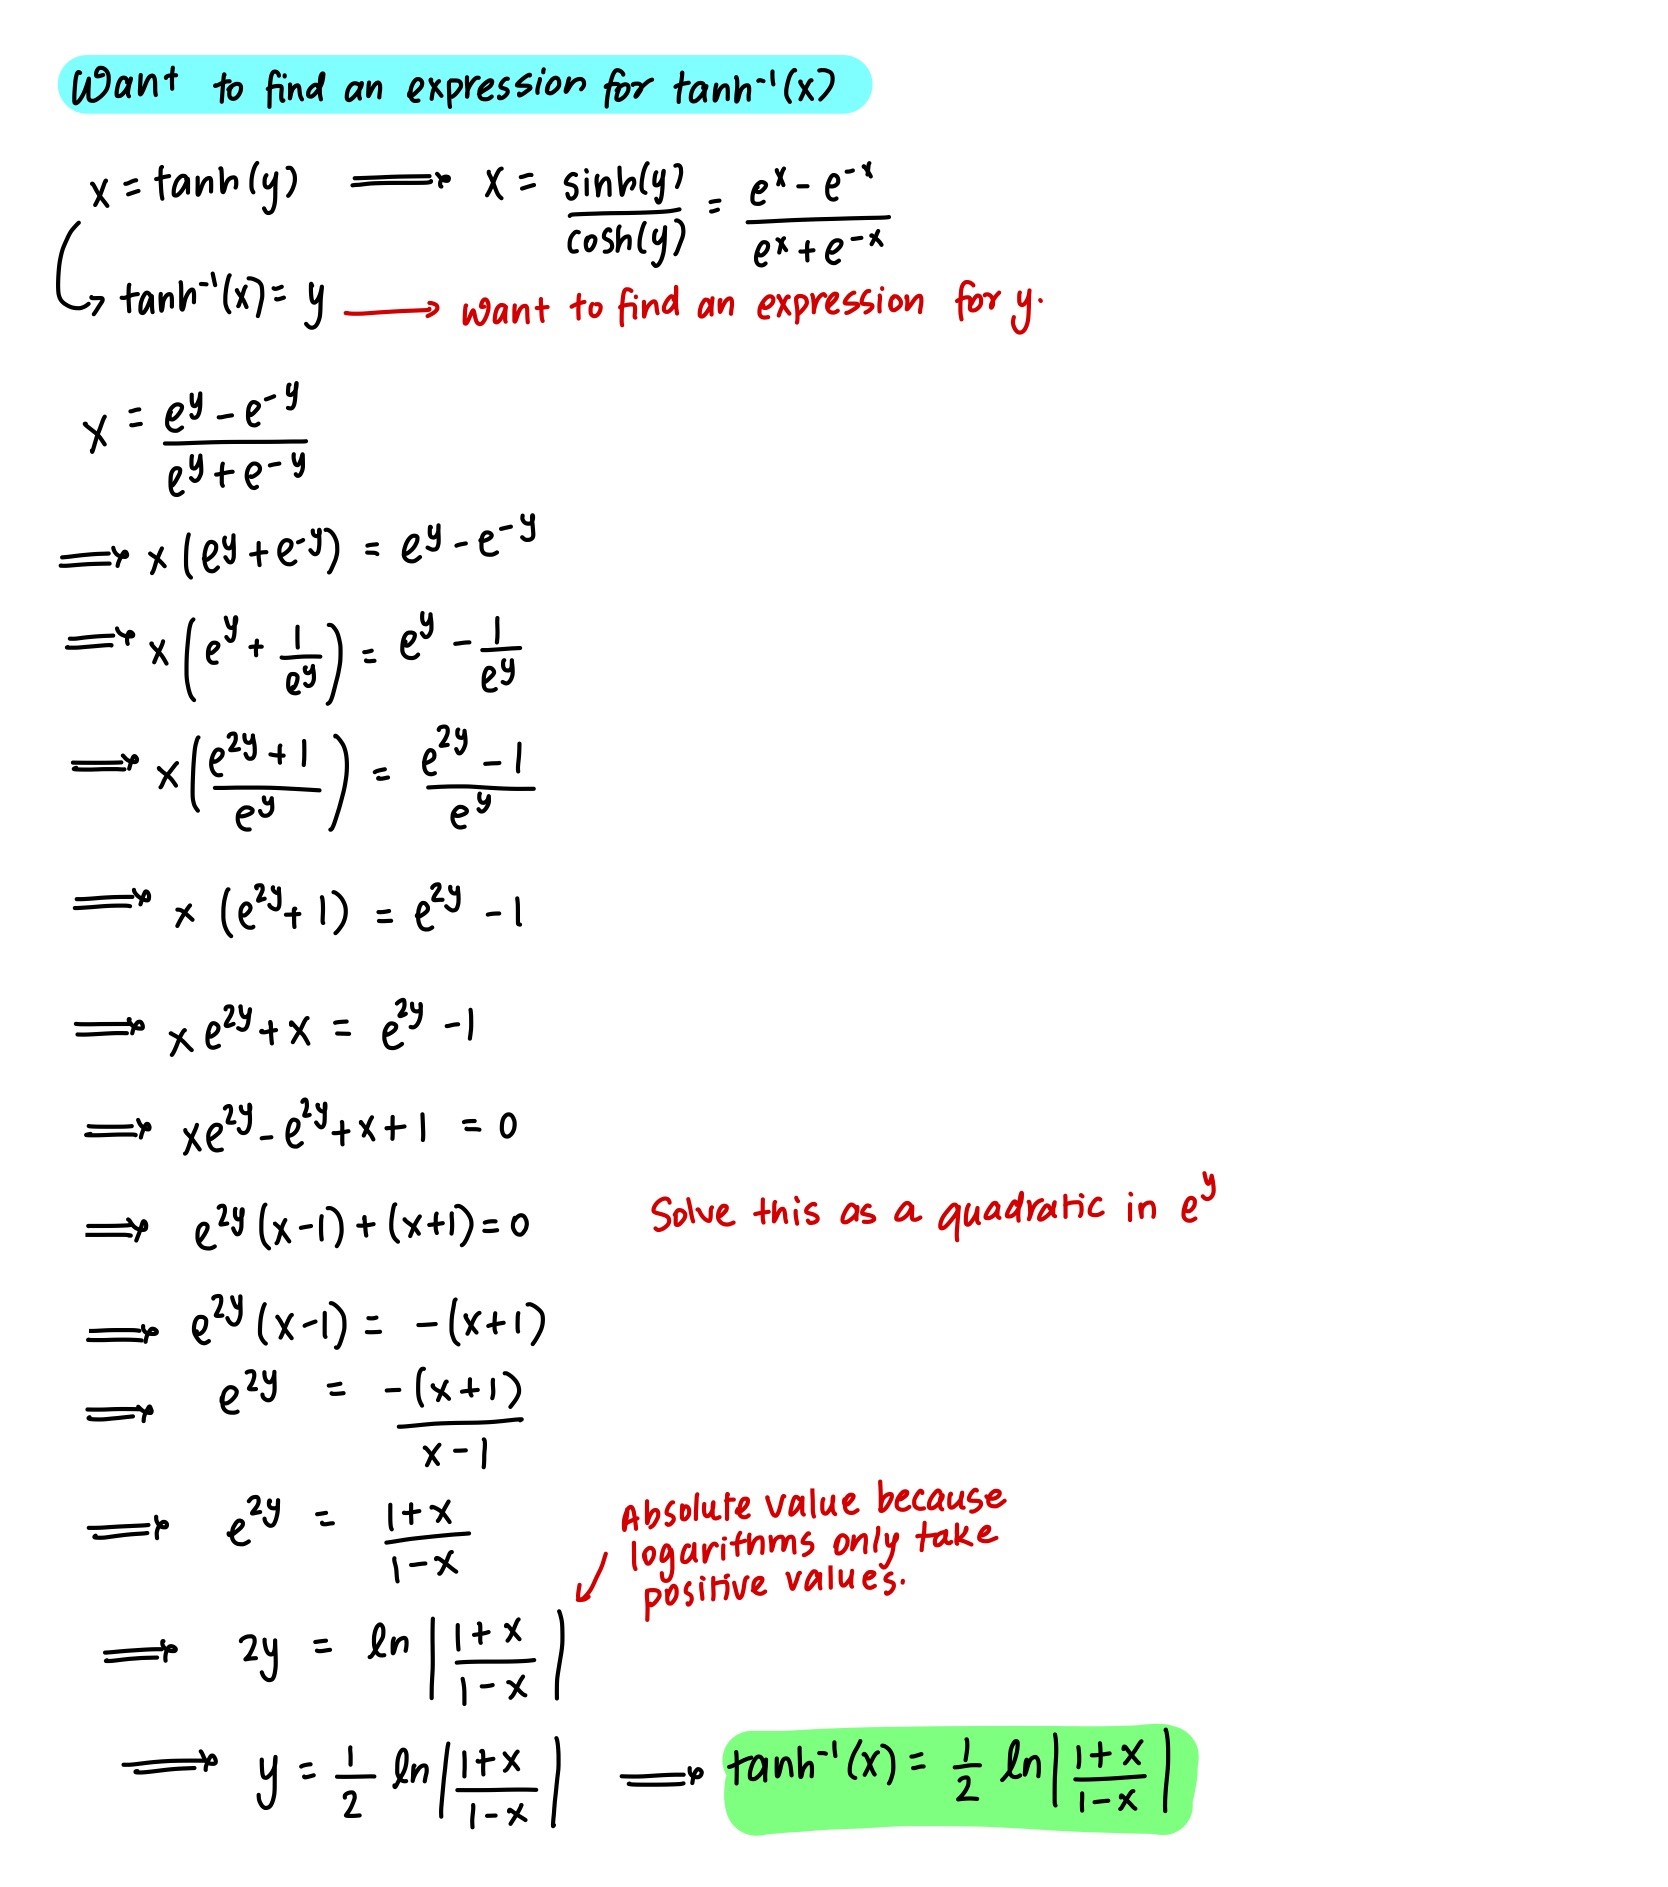 Want to find an expression for tanh⁻¹(x)
x = tanh(y) ⟹ x = sinh(y)/cosh(y) = (eˣ - e⁻ˣ)/(eˣ + e⁻ˣ)
tanh⁻¹(x) = y → want to find an expression for y.
x = (e^y - e^-y)/(e^y + e^-y)
⟹ x (e^y + e^-y) = e^y - e^-y
⟹ x (e^y + 1/e^y) = e^y - 1/e^y
⟹ x ((e^2y + 1)/e^y) = (e^2y - 1)/e^y
⟹ x (e^2y + 1) = e^2y - 1
⟹ x e^2y + x = e^2y - 1
⟹ xe^2y - e^2y + x + 1 = 0
⟹ e^2y (x-1) + (x+1) = 0 Solve this as a quadratic in e^y
⟹ e^2y (x-1) = -(x+1)
⟹ e^2y = -(x+1)/(x-1)
⟹ e^2y = (1+x)/(1-x)
Absolute value because
logarithms only take
positive values.
⟹ 2y = ln |(1+x)/(1-x)|
⟹ y = 1/2 ln |(1+x)/(1-x)| ⟹ tanh⁻¹(x) = 1/2 ln |(1+x)/(1-x)|